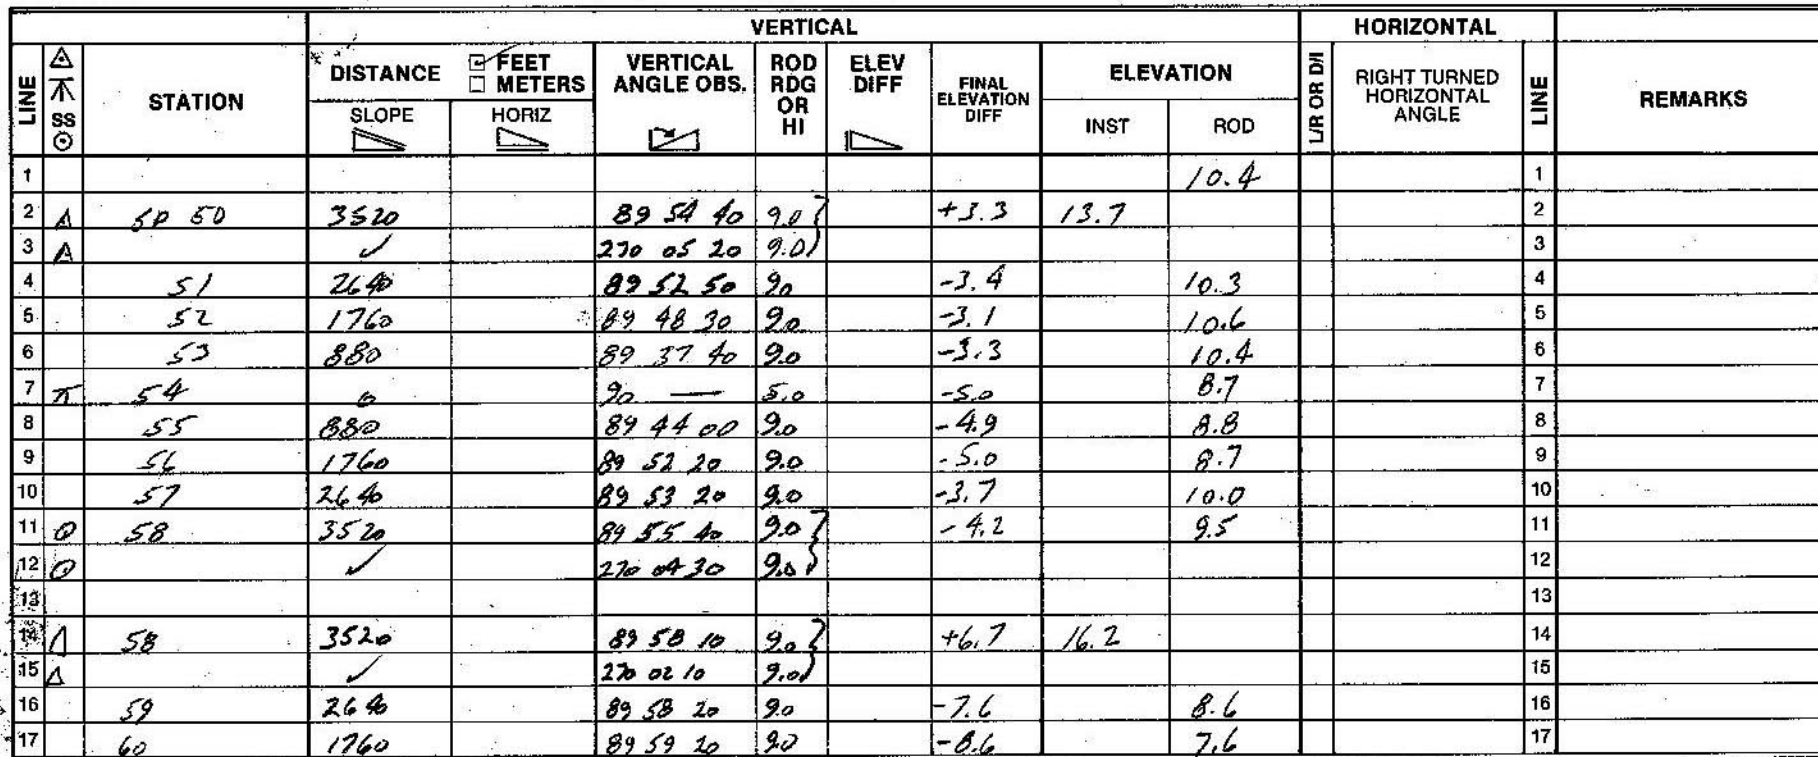 VERTICAL HORIZONTAL
LINE SS STATION DISTANCE FEET METERS VERTICAL ANGLE OBS. ROD RDG OR HI ELEV DIFF FINAL ELEVATION DIFF ELEVATION L/R OR D/I RIGHT TURNED HORIZONTAL ANGLE LINE REMARKS
SLOPE HORIZ INST ROD
1 10.4 1
2 50 3520 89 54 40 9.0 +3.3 13.7 2
3 ✓ 270 05 20 9.0 3
4 51 2640 89 52 50 9.0 -3.4 10.3 4
5 52 1760 89 48 30 9.0 -3.1 10.6 5
6 53 880 89 37 40 9.0 -3.3 10.4 6
7 54 0 90 — 5.0 -5.0 8.7 7
8 55 880 89 44 00 9.0 -4.9 8.8 8
9 56 1760 89 52 20 9.0 -5.0 8.7 9
10 57 2640 89 53 20 9.0 -3.7 10.0 10
11 58 3520 89 55 40 9.0 -4.2 9.5 11
12 ✓ 270 04 30 9.0 12
13 13
14 58 3520 89 58 10 9.0 +6.7 16.2 14
15 ✓ 270 02 10 9.0 15
16 59 2640 89 58 20 9.0 -7.6 8.6 16
17 60 1760 89 59 20 9.0 -8.6 7.6 17